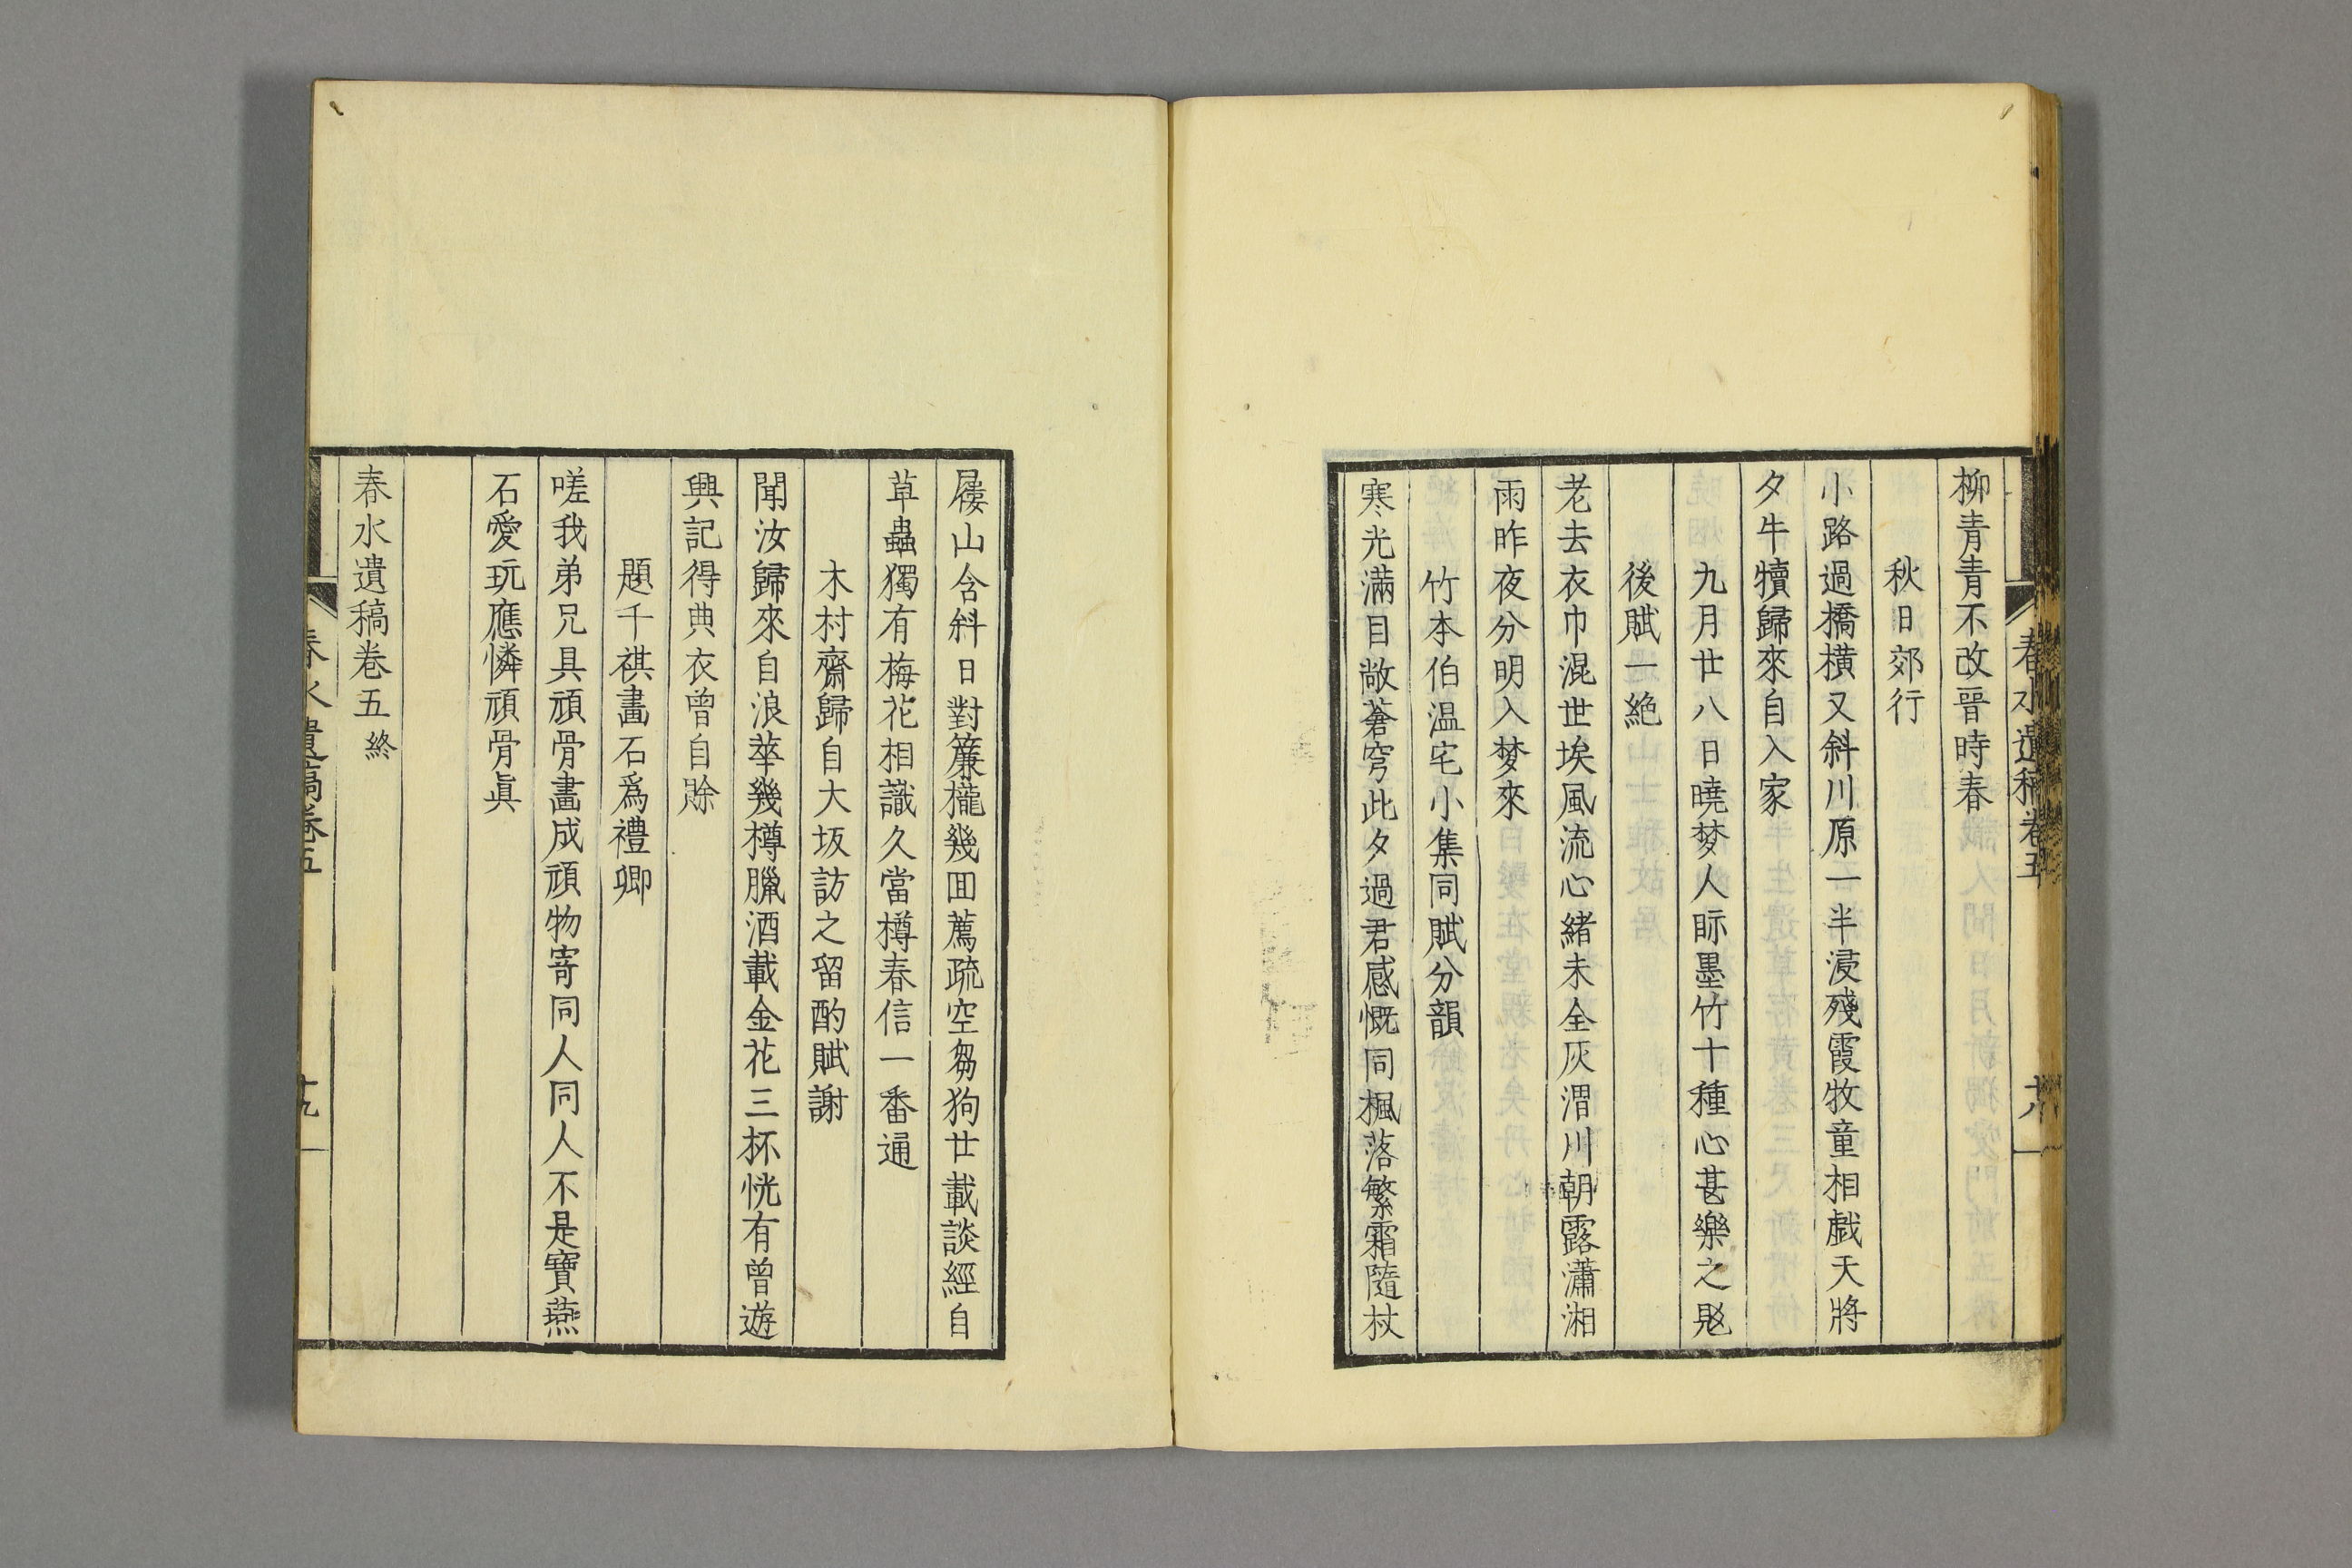 春水遺稿卷五
十八
柳青青不改晉時春
秋日郊行
小路過橋橫又斜川原一半浸殘霞牧童相戯天將
夕牛犢歸來自入家
九月廿八日曉梦人眎墨竹十種心甚樂之覐
後賦一絶
老去衣巾混世埃風流心緒未全灰渭川朝露瀟湘
雨昨夜分明入梦來
竹本伯温宅小集同賦分韻
寒光滿目敞蒼穹此夕過君感慨同楓落繁霜隨杖
屨山含斜日對簾櫳幾囬薦疏空芻狗廿載談經自
草蟲獨有梅花相識久當樽春信一番通
木村齋歸自大坂訪之留酌賦謝
聞汝歸來自浪華幾樽臘酒載金花三杯恍有曾遊
興記得典衣曾自賒
題千祺畫石爲禮卿
嗟我弟兄具頑骨畫成頑物寄同人同人不是寶燕
石愛玩應憐頑骨眞
春水遺稿卷五終
春水遺稿卷五
十九